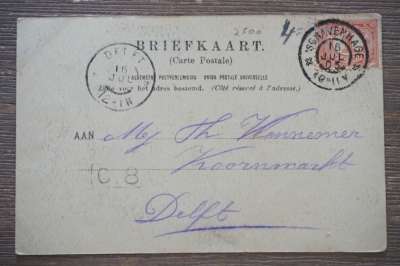 2500 4,-
BRIEFKAART.
(Carte Postale)
ALGEMEENE POSTVEREENIGING UNION POSTALE UNIVERSELLE
Zijde voor het adres bestemd. (Côté réservé à l'adresse.)
DELFT
16
JUL
12-1N
'S GRAVENHAGE
16
JUL
AAN Mej Th Wennemer
Koornmarkt
C_8
Delft